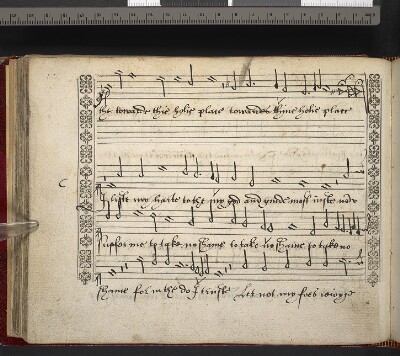 ht towarde this holie place towardes thine holie place
C
I lift my harte to thee my god and guide most iuste now
suffer me to take no shame to take no shame to take no
shame for in the do I truste Let not my foes reioyse